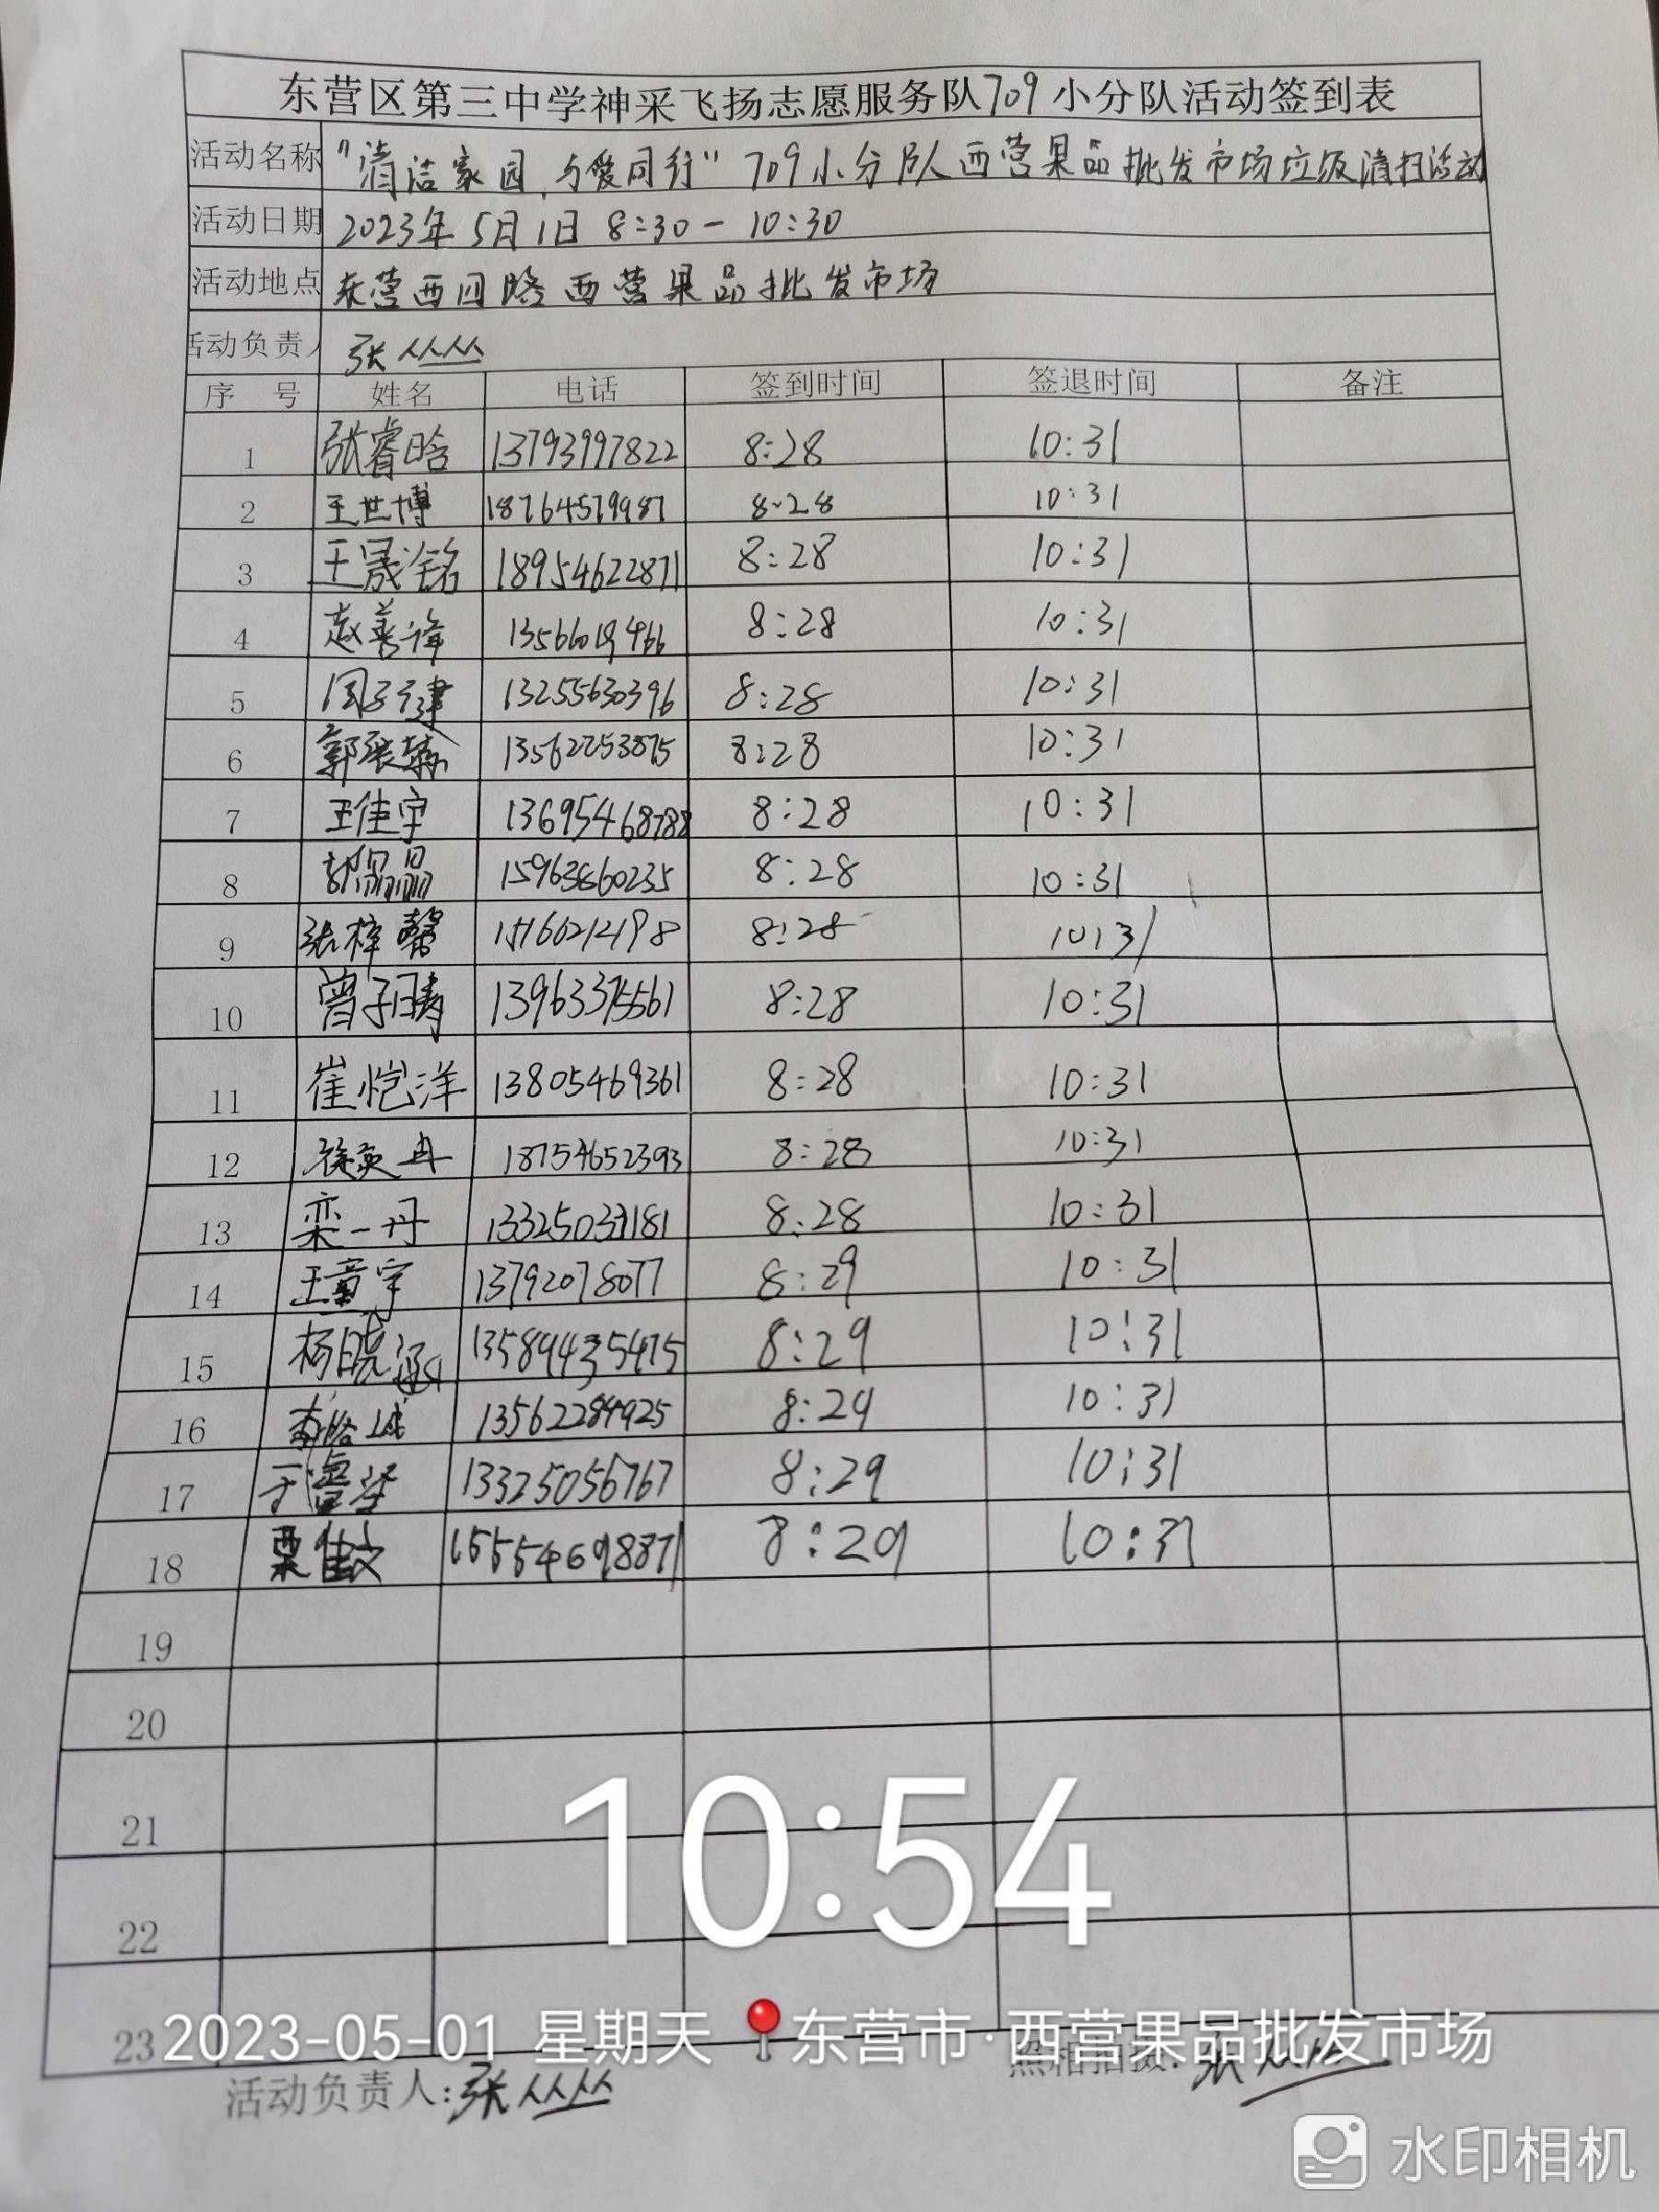 东营区第三中学神采飞扬志愿服务队709小分队活动签到表
活动名称 "清洁家园,与爱同行" 709小分队西营果品批发市场垃圾清扫活动
活动日期 2023年5月1日 8:30-10:30
活动地点 东营西四路西营果品批发市场
活动负责人 张丛丛
序号 姓名 电话 签到时间 签退时间 备注
1 张睿晗 13793997822 8:28 10:31
2 王世博 18764579987 8:28 10:31
3 王晟铭 18954622871 8:28 10:31
4 赵善 8:28 10:31
5 周子健 13255630396 8:28 10:31
6 郭张 13562253875 8:28 10:31
7 王佳宇 13695468788 8:28 10:31
8 15963860235 8:28 10:31
9 张梓馨 15166212198 8:28 10:31
10 曾子晴 13963375561 8:28 10:31
11 崔恺洋 13805469361 8:28 10:31
12 徐奕冉 18754652393 8:28 10:31
13 栾一丹 8:28 10:31
14 王童宇 13792078077 8:29 10:31
15 杨晓涵 13589435475 8:29 10:31
16 13562284925 8:29 10:31
17 于 13325056767 8:29 10:31
18 栗佳文 15554698871 8:29 10:31
19
20
21
22
23
10:54
2023-05-01 星期天 东营市·西营果品批发市场
活动负责人:张丛丛 照相拍摄:张丛丛
水印相机